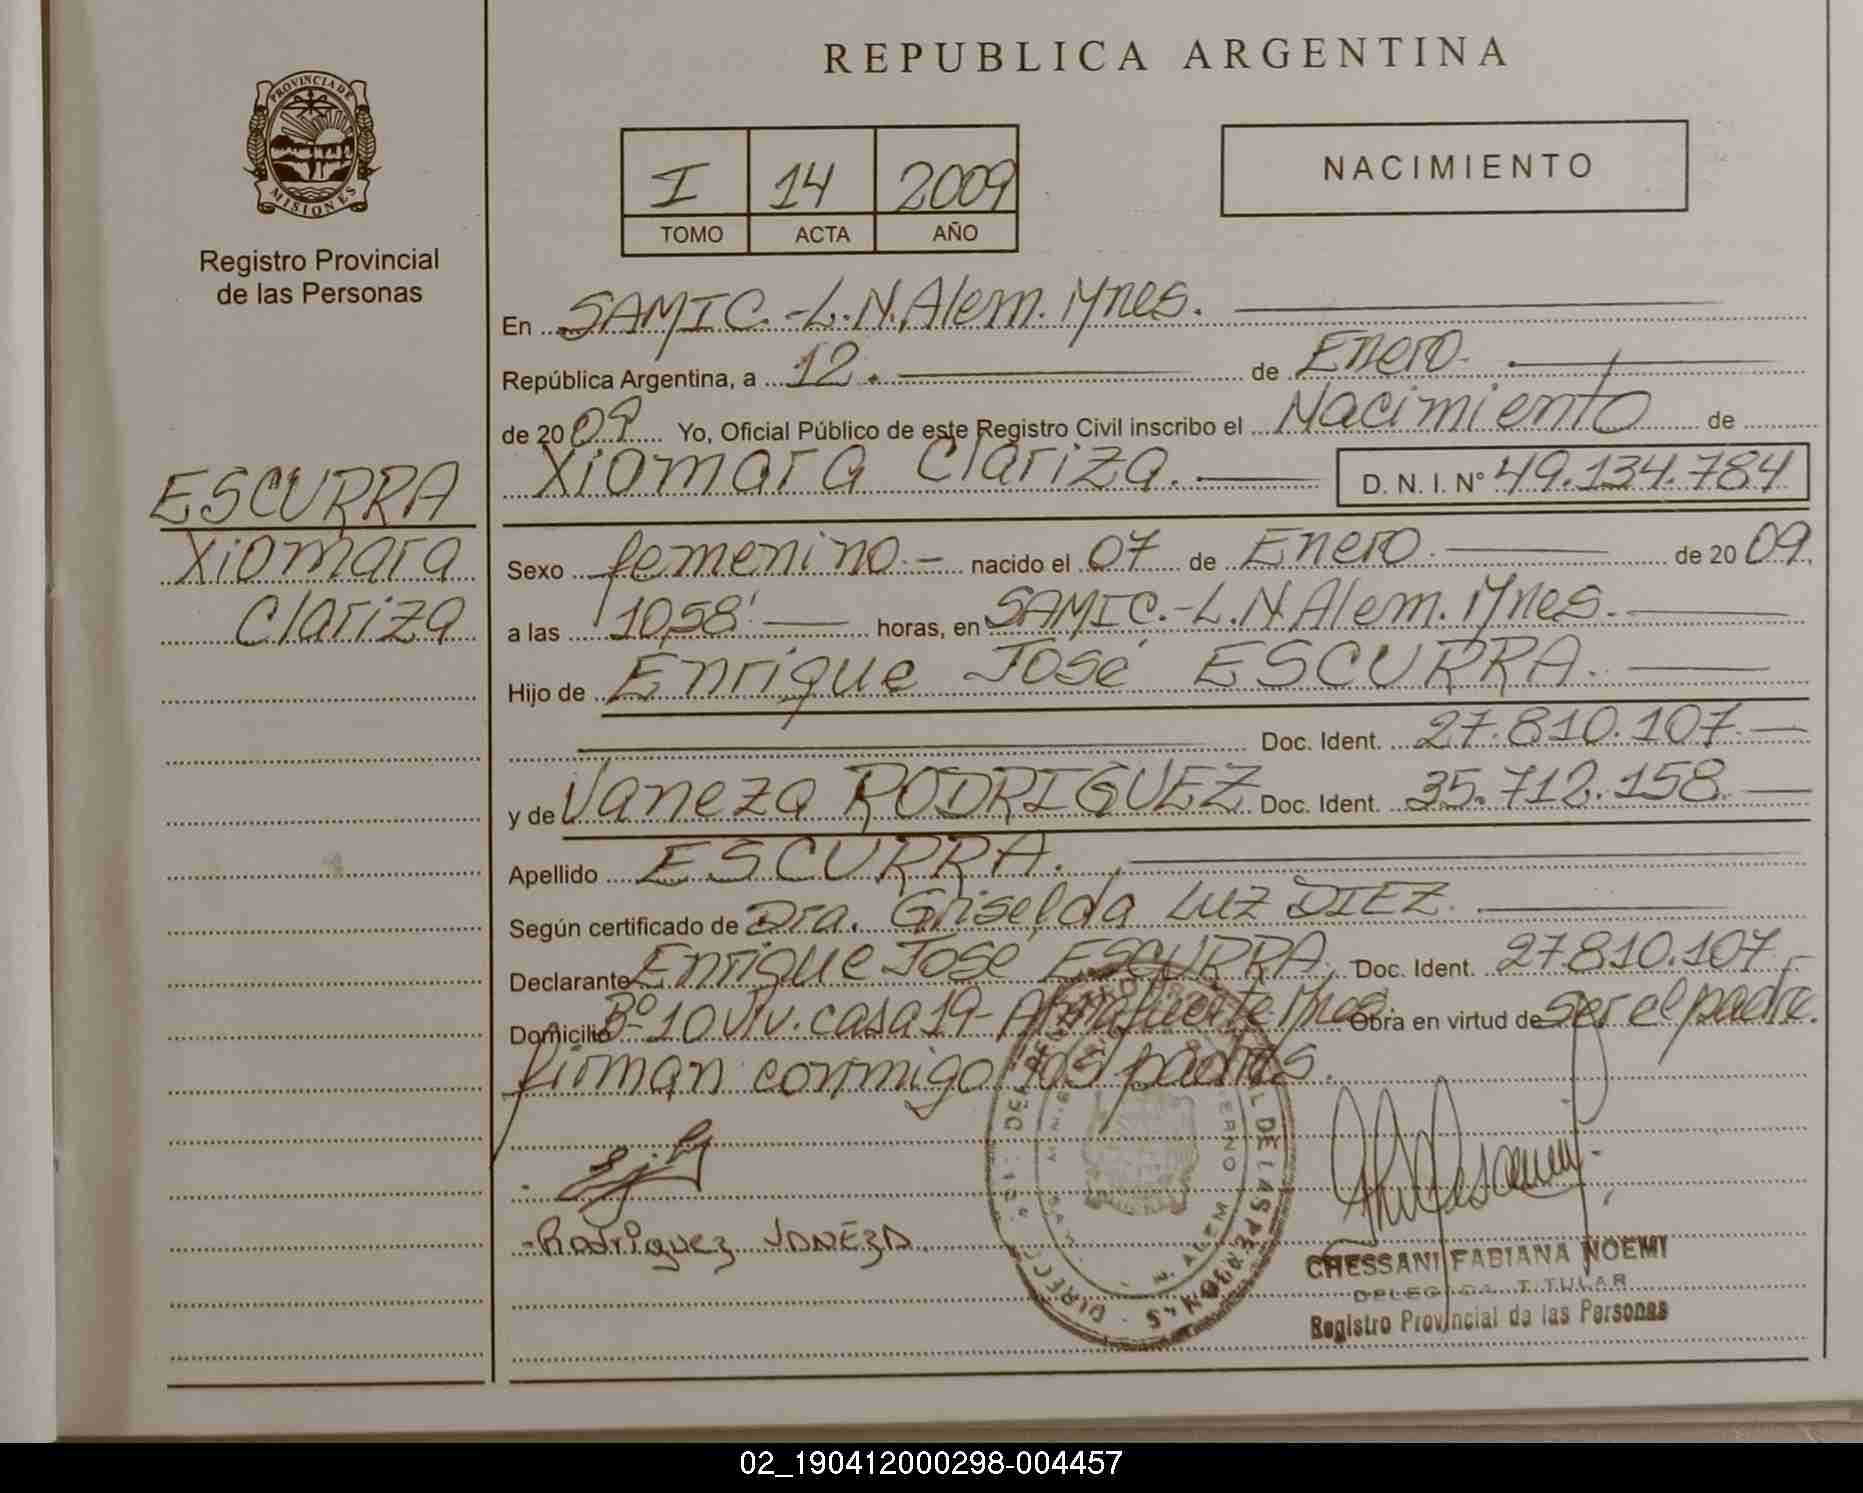 REPUBLICA ARGENTINA
PROVINCIA DE
MISIONES
Registro Provincial
de las Personas
I 14 2009
TOMO ACTA AÑO
NACIMIENTO
En SAMIC.-L.N.Alem. Mnes.
República Argentina, a 12. de Enero.
de 2009 Yo, Oficial Público de este Registro Civil inscribo el Nacimiento de
Xiomara Clariza. D. N. I. N° 49.134.784
ESCURRA
Xiomara
Clariza
Sexo femenino.- nacido el 07 de Enero. de 2009.
a las 10,58' horas, en SAMIC.-L.N.Alem. Mnes.
Hijo de Enrique José ESCURRA.
Doc. Ident. 27.810.107.
y de Vaneza RODRIGUEZ Doc. Ident. 35.712.158.
Apellido ESCURRA.
Según certificado de Dra. Griselda Luz DIEZ.
Declarante Enrique Jose ESCURRA, Doc. Ident. 27.810.107.
Domicilio B° 10 Viv. casa 19- Almafuerte Mnes. Obra en virtud de ser el padre.
firman conmigo los padres.
-Rodriguez VANEZA
CHESSANI FABIANA NOEMI
DELEGADA TITULAR
Registro Provincial de las Personas
02_190412000298-004457